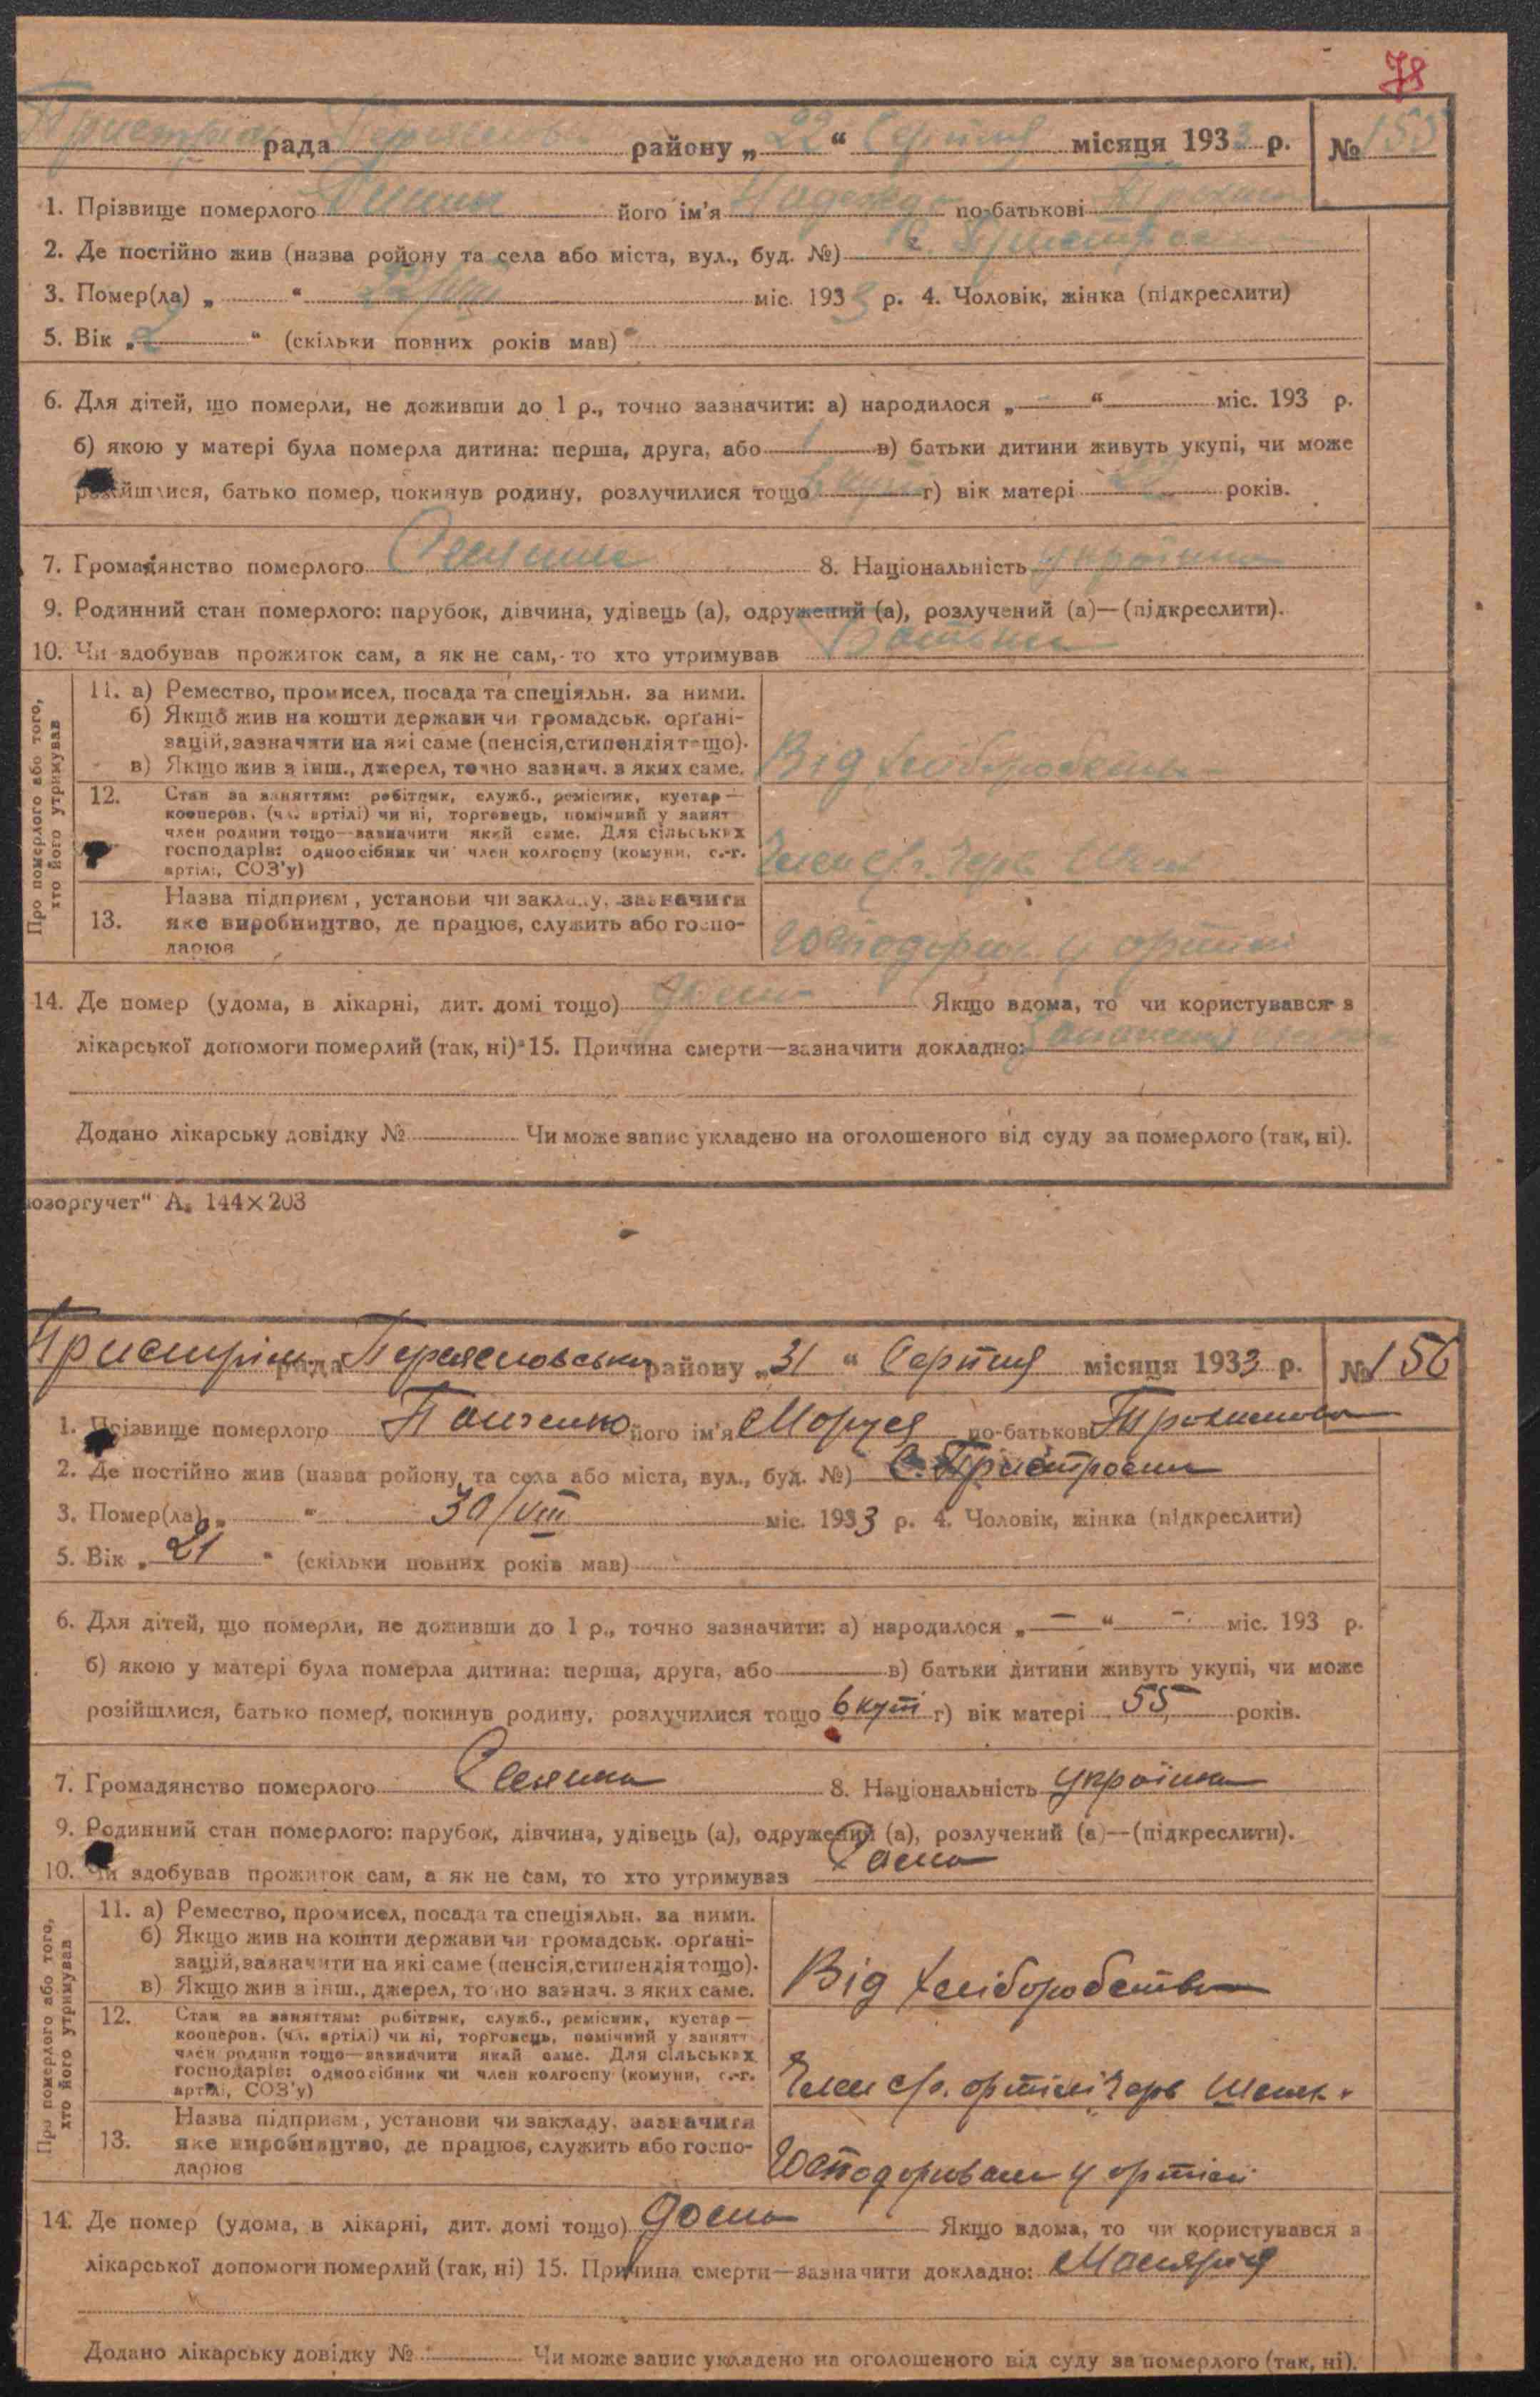 78
рада району „ 22 “ Серпня місяця 1933 р. № 155
1. Прізвище померлого його ім'я Надежда по-батькові
2. Де постійно жив (назва ройону та села або міста, вул., буд. №)
3. Помер(ла) „ “ 22/VIII міс. 1933 р. 4. Чоловік, жінка (підкреслити)
5. Вік „ 2 “ (скільки повних років мав)
6. Для дітей, що померли, не доживши до 1 р., точно зазначити: а) народилося „ — “ міс. 193 р.
б) якою у матері була померла дитина: перша, друга, або в) батьки дитини живуть укупі, чи може
розійшлися, батько помер, покинув родину, розлучилися тощо вкупі г) вік матері років.
7. Громадянство померлого Селянка 8. Національність українка
9. Родинний стан померлого: парубок, дівчина, удівець (а), одружений (а), розлучений (а)—(підкреслити).
10. Чи здобував прожиток сам, а як не сам, то хто утримував Батьки
Про померлого або того,
хто його утримував
11. а) Ремество, промисел, посада та спеціяльн. за ними.
б) Якщо жив на кошти держави чи громадськ. орґані-
зацій, зазначити на які саме (пенсія, стипендія тощо).
в) Якщо жив з інш., джерел, точно зазнач. з яких саме.
Від хліборобства
12. Стан за заняттям: робітник, служб., ремісник, кустар—
кооперов. (чл. артілі) чи ні, торговець, помічний у занят
член родини тощо—зазначити який саме. Для сільських
господарів: одноосібник чи член колгоспу (комуни, с.-г.
артілі, СОЗ'у)
Член с/г. Черв.
13. Назва підприєм, установи чи закладу, зазначити
яке виробництво, де працює, служить або госпо-
дарює
у артілі
14. Де помер (удома, в лікарні, дит. домі тощо) дома Якщо вдома, то чи користувався з
лікарської допомоги померлий (так, ні) 15. Причина смерти—зазначити докладно:
Додано лікарську довідку № Чи може запис укладено на оголошеного від суду за померлого (так, ні).
озоргучет“ А. 144×203
рада Переяславськ району „ 31 “ Серпня місяця 1933 р. № 156
1. Прізвище померлого Панченко його ім'я Маруся по-батькові Трохимовна
2. Де постійно жив (назва ройону та села або міста, вул., буд. №) С. Пристроми
3. Помер(ла) „ “ 30/VIII міс. 1933 р. 4. Чоловік, жінка (підкреслити)
5. Вік „ 21 “ (скільки повних років мав)
6. Для дітей, що померли, не доживши до 1 р., точно зазначити: а) народилося „ — “ — міс. 193 р.
б) якою у матері була померла дитина: перша, друга, або в) батьки дитини живуть укупі, чи може
розійшлися, батько помер, покинув родину, розлучилися тощо вкупі г) вік матері 55 років.
7. Громадянство померлого Селянка 8. Національність українка
9. Родинний стан померлого: парубок, дівчина, удівець (а), одружений (а), розлучений (а)—(підкреслити).
10. Чи здобував прожиток сам, а як не сам, то хто утримував Сама
Про померлого або того,
хто його утримував
11. а) Ремество, промисел, посада та спеціяльн. за ними.
б) Якщо жив на кошти держави чи громадськ. орґані-
зацій, зазначити на які саме (пенсія, стипендія тощо).
в) Якщо жив з інш., джерел, точно зазнач. з яких саме.
Від хліборобства
12. Стан за заняттям: робітник, служб., ремісник, кустар—
кооперов. (чл. артілі) чи ні, торговець, помічний у занятт
член родини тощо—зазначити який саме. Для сільських
господарів: одноосібник чи член колгоспу (комуни, с.-г.
артілі, СОЗ'у)
Член с/г. артілі Черв Шлях
13. Назва підприєм, установи чи закладу, зазначити
яке виробництво, де працює, служить або госпо-
дарює
Господарювали у артілі
14. Де помер (удома, в лікарні, дит. домі тощо) дома Якщо вдома, то чи користувався з
лікарської допомоги померлий (так, ні) 15. Причина смерти—зазначити докладно: Малярія
Додано лікарську довідку № Чи може запис укладено на оголошеного від суду за померлого (так, ні).